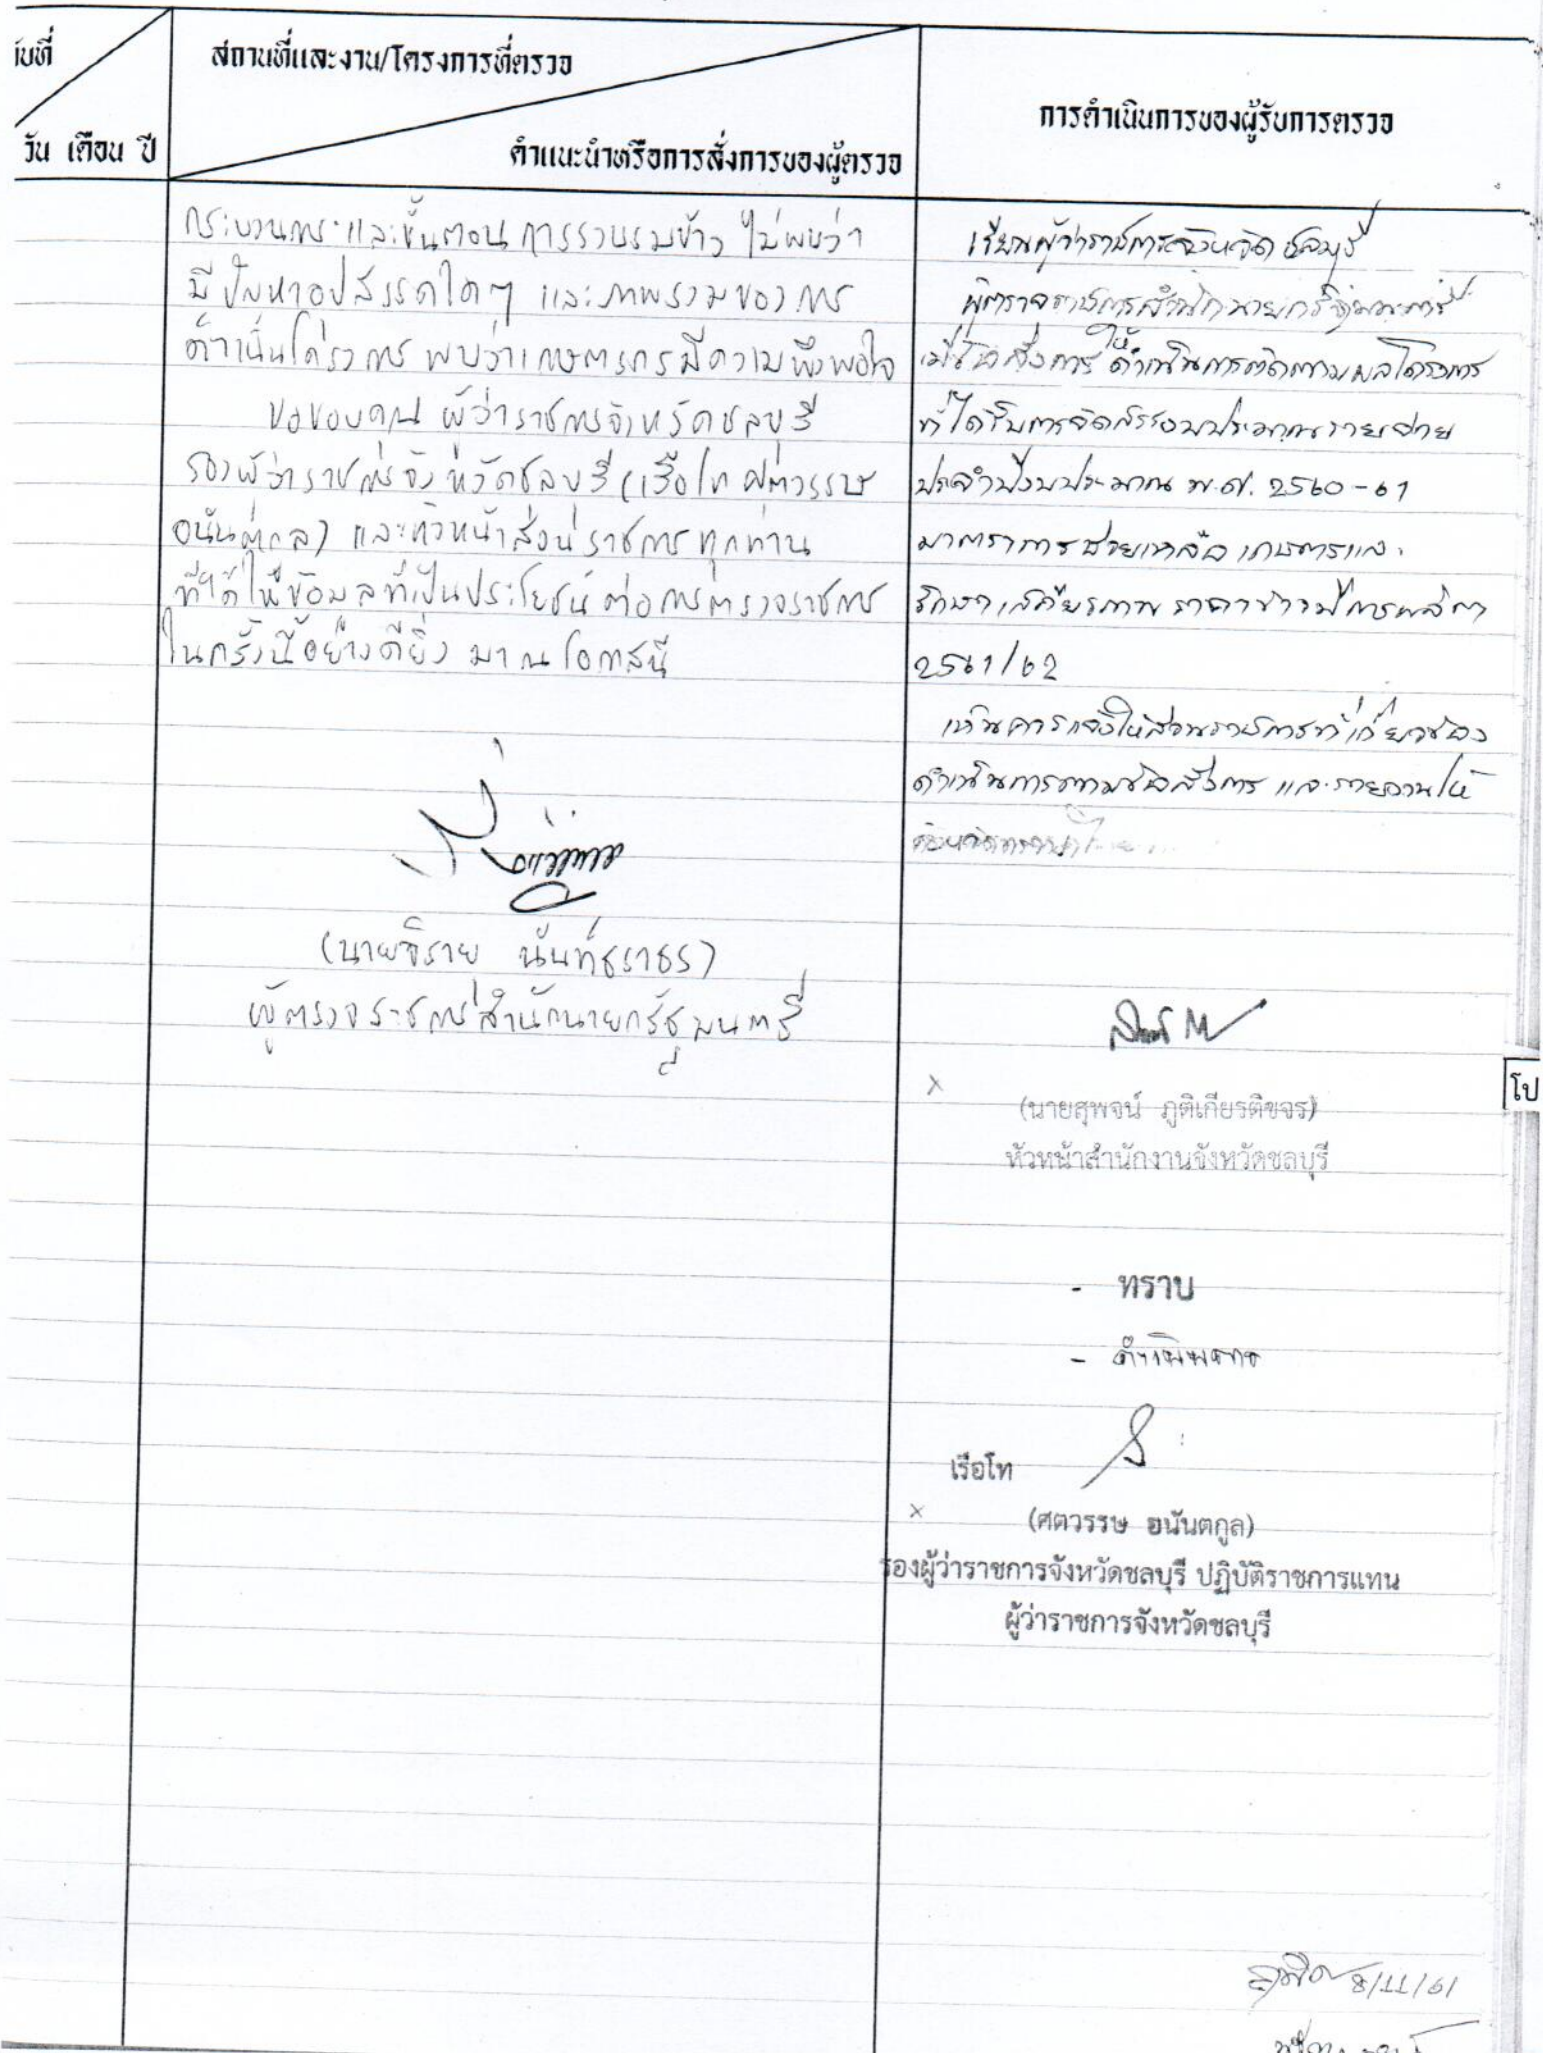 วันที่
สถานที่และงาน/โครงการที่ตรวจ
วัน เดือน ปี
คำแนะนำหรือการสั่งการของผู้ตรวจ
การดำเนินการของผู้รับการตรวจ
กระบวนการและขั้นตอนการรวบรวมข้าว ไม่พบว่า
มีปัญหาอุปสรรคใดๆ และภาพรวมของการ
ดำเนินโครงการ พบว่าเกษตรกรมีความพึงพอใจ
ขอขอบคุณ ผู้ว่าราชการจังหวัดชลบุรี
รองผู้ว่าราชการจังหวัดชลบุรี (เรือโท ศตวรรษ
อนันตกูล) และหัวหน้าส่วนราชการทุกท่าน
ที่ได้ให้ข้อมูลที่เป็นประโยชน์ต่อการตรวจราชการ
ในครั้งนี้อย่างดียิ่ง มา ณ โอกาสนี้
(นายจิราย นันท์ธราธร)
ผู้ตรวจราชการสำนักนายกรัฐมนตรี
เรียนผู้ว่าราชการจังหวัดชลบุรี
ผู้ตรวจราชการสำนักนายกรัฐมนตรี
มีข้อสั่งการ ให้ดำเนินการติดตามผลโครงการ
ที่ได้รับการจัดสรรงบประมาณรายจ่าย
ประจำปีงบประมาณ พ.ศ. 2560-61
มาตรการช่วยเหลือเกษตรและ
รักษาเสถียรภาพ ราคาข้าวปีการผลิต
2561/62
เห็นควรแจ้งให้ส่วนราชการที่เกี่ยวข้อง
ดำเนินการตามข้อสั่งการ และรายงานให้
(นายสุพจน์ ภูติเกียรติขจร)
หัวหน้าสำนักงานจังหวัดชลบุรี
โป
- ทราบ
- ดำเนินการ
เรือโท
(ศตวรรษ อนันตกูล)
รองผู้ว่าราชการจังหวัดชลบุรี ปฏิบัติราชการแทน
ผู้ว่าราชการจังหวัดชลบุรี
8/11/61